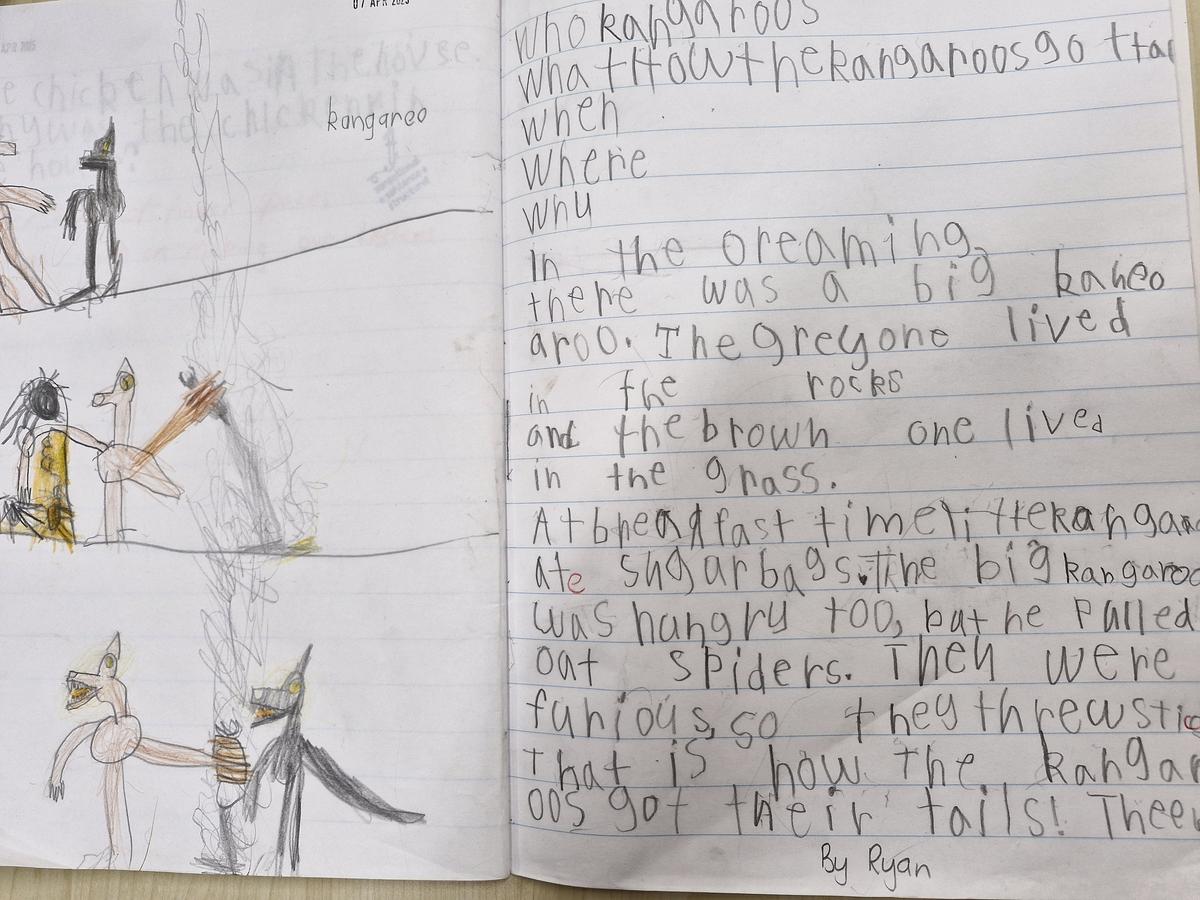 07 APR 2025
kangaroo
who kangaroos
what How the kangaroos go
when
where
why
In the Dreaming,
there was a big kaneo
aroo. The grey one lived
in the rocks
and the brown one lived
in the grass.
At breadfast time
ate sugarbags. The big kangaroo
was hungry too, but he pulled
out spiders. They were
furious, so they threw stic
that is how the kangar
oos got their tails!
By Ryan